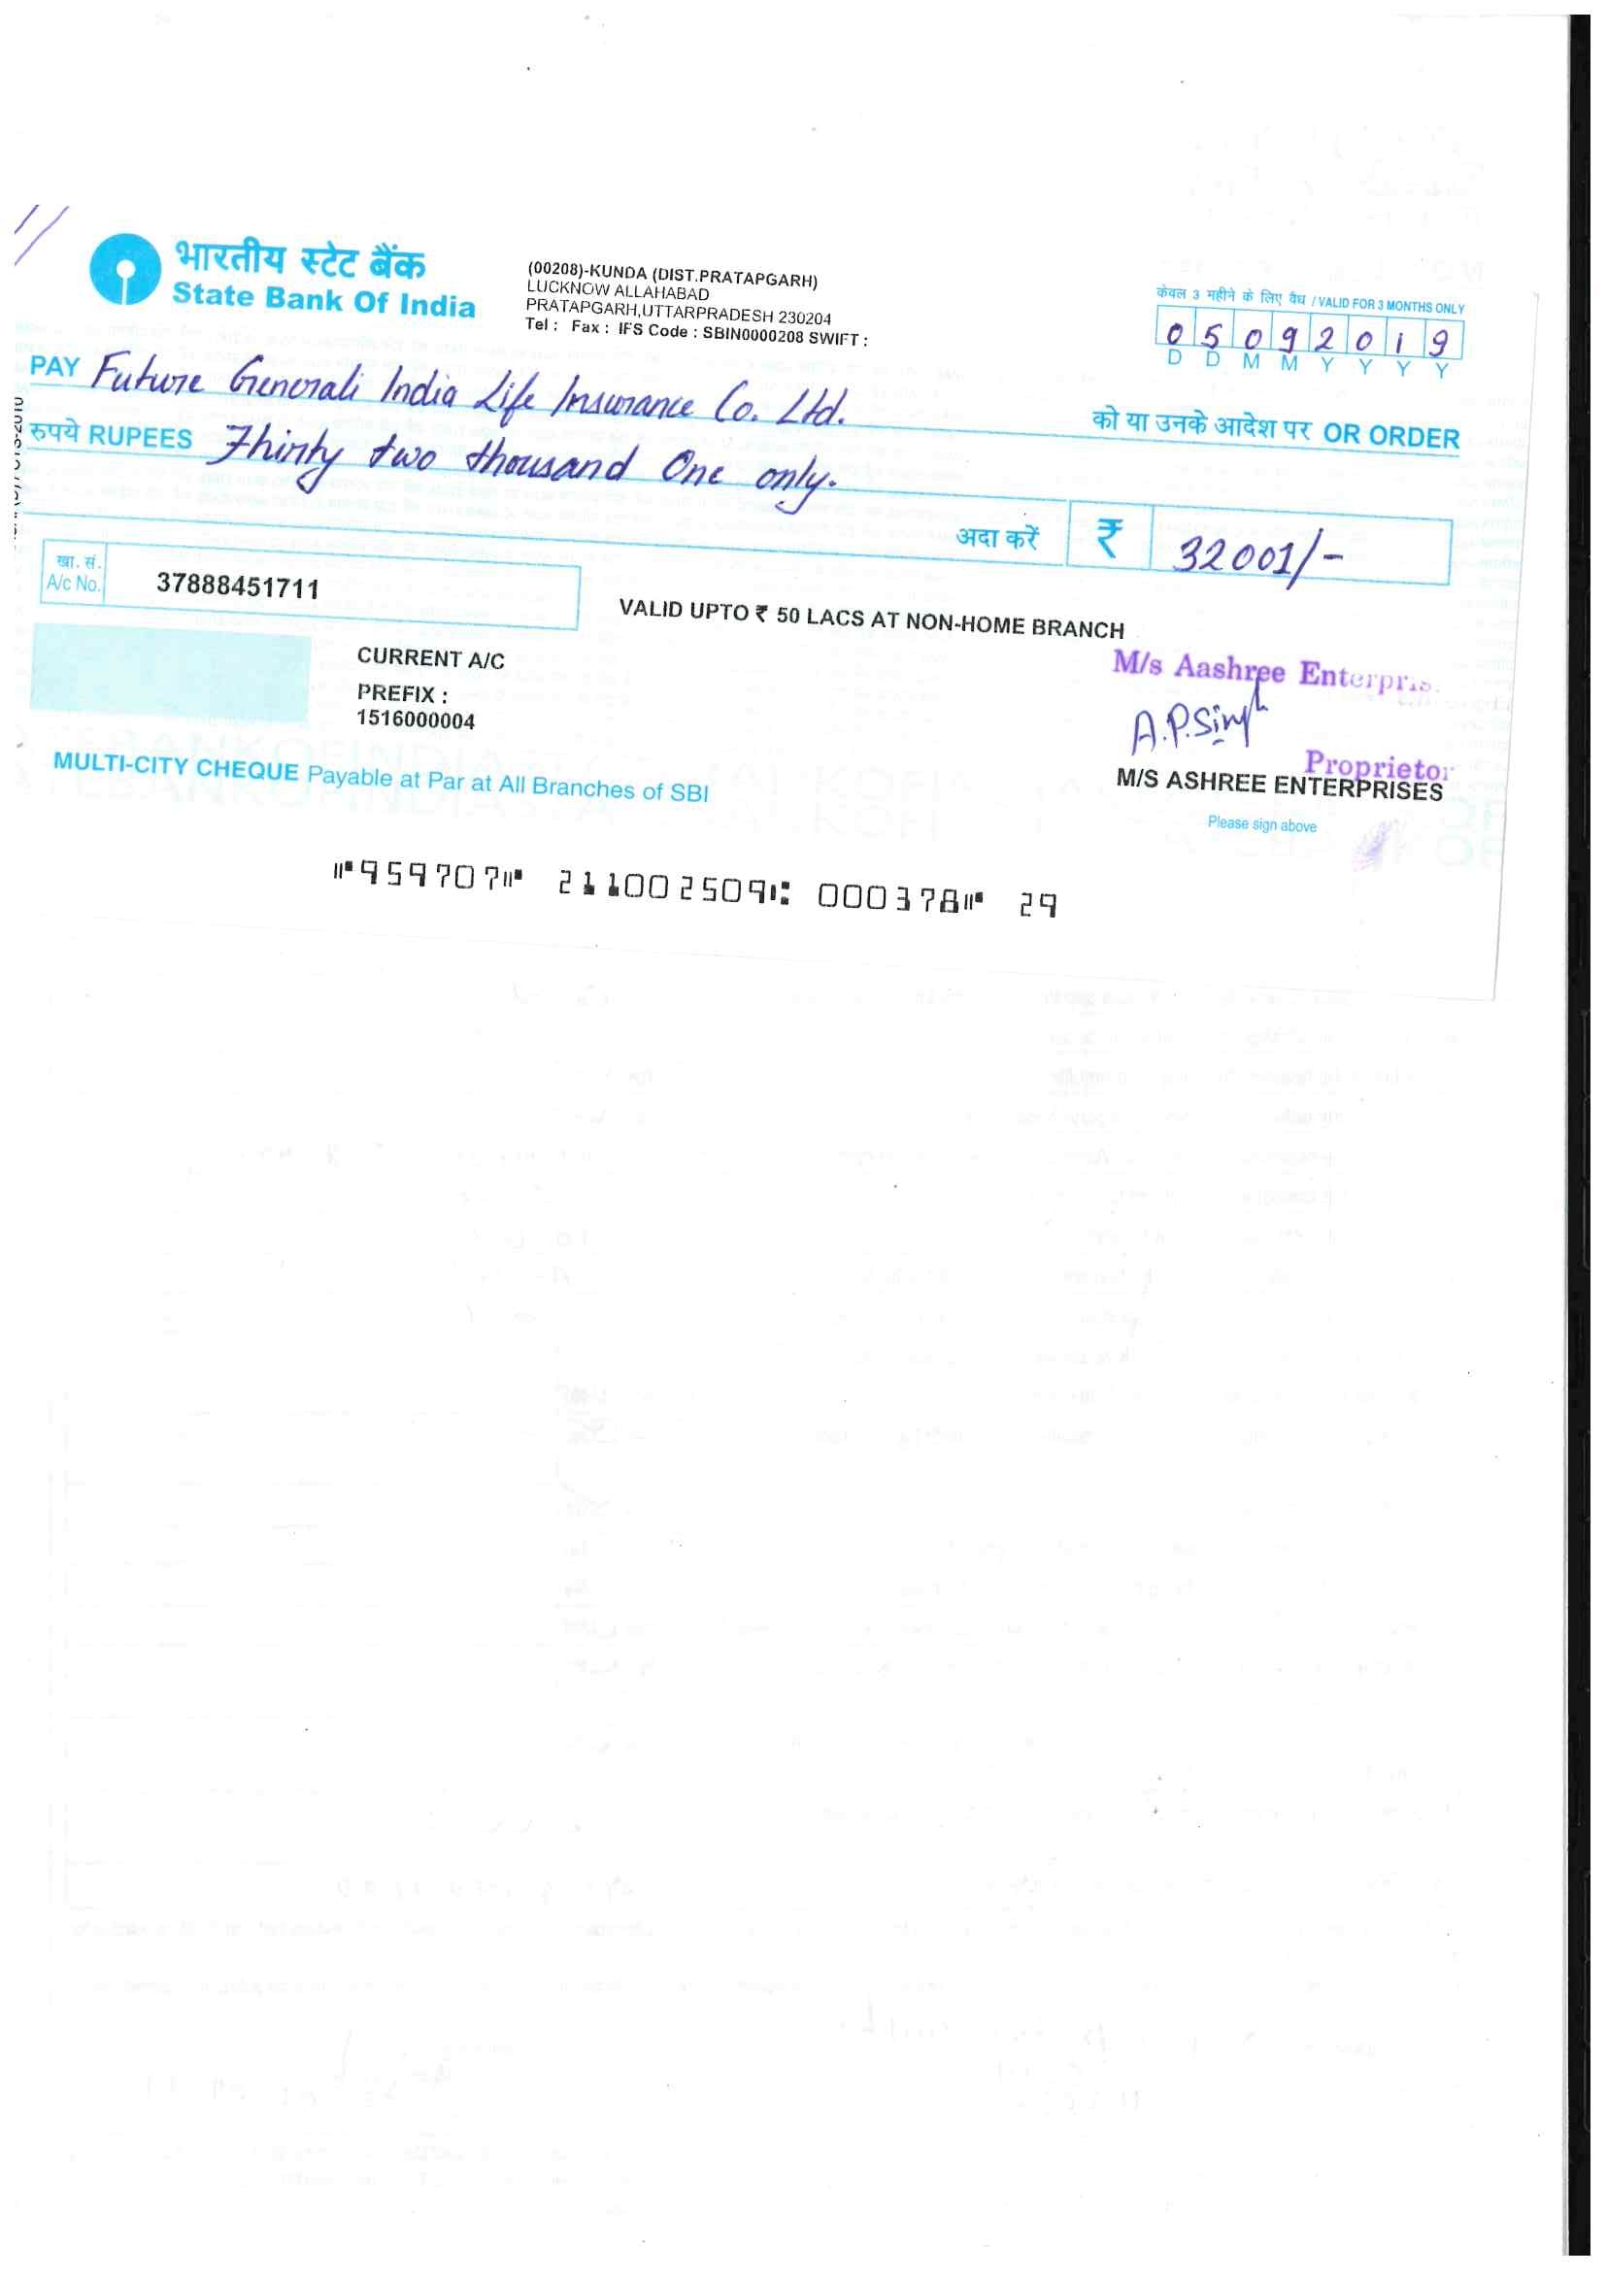 भारतीय स्टेट बैंक
State Bank Of India
(00208)-KUNDA (DIST.PRATAPGARH)
LUCKNOW ALLAHABAD
PRATAPGARH,UTTARPRADESH 230204
Tel : Fax : IFS Code : SBIN0000208 SWIFT :
केवल 3 महीने के लिए वैध / VALID FOR 3 MONTHS ONLY
0 5 0 9 2 0 1 9
D D M M Y Y Y Y
PAY Future Generali India Life Insurance Co. Ltd.
को या उनके आदेश पर OR ORDER
रुपये RUPEES Thirty two thousand One only.
अदा करें ₹ 32001/-
खा. सं.
A/c No. 37888451711
VALID UPTO ₹ 50 LACS AT NON-HOME BRANCH
CURRENT A/C
PREFIX :
1516000004
M/s Aashree
A.P.Singh
Proprietor
M/S ASHREE ENTERPRISES
Please sign above
MULTI-CITY CHEQUE Payable at Par at All Branches of SBI
⑈959707⑈ 211002509⑆ 000378⑈ 29